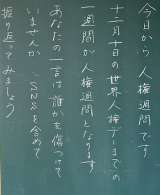 今日から人権週間です
十二月十日の世界人権デーまでの
一週間が人権週間となります
あなたの一言は誰かを傷つけて
いませんか SNSを含めて
振り返ってみましょう